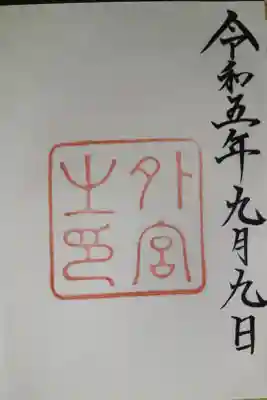 令和五年九月九日
外宮
之印